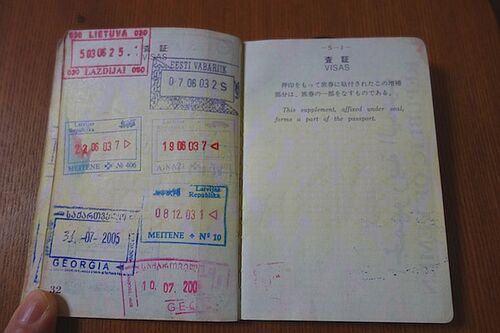 LIETUVA
503 06 25
LAZDIJAI
査証
VISAS
EESTI VABARIIK
07.06 03 2 S
Latvijas
Republika
06 03 7
MEITENE № 406
19 06 03 7
AINAŽI
Latvijas
Republika
08 12.03 1
MEITENE № 10
საქართველო
31 -07- 2005
GEORGIA
10 07. 200
32
-S-1-
査証
VISAS
押印をもって旅券に貼付されたこの増補
部分は、旅券の一部をなすものである。
This supplement, affixed under seal,
forms a part of the passport.